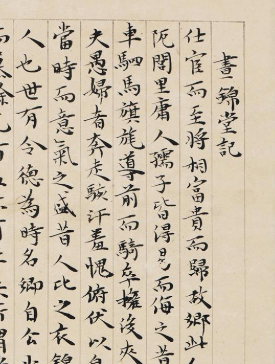 晝錦堂記
仕宦而至將相富貴而歸故鄉此人
阨閭里庸人孺子皆得易而侮之若
車駟馬旗旄導前而騎卒擁後夾
夫愚婦者奔走駭汗羞愧俯伏以自
當時而意氣之盛昔人比之衣錦
人也世有令德為時名卿自公少